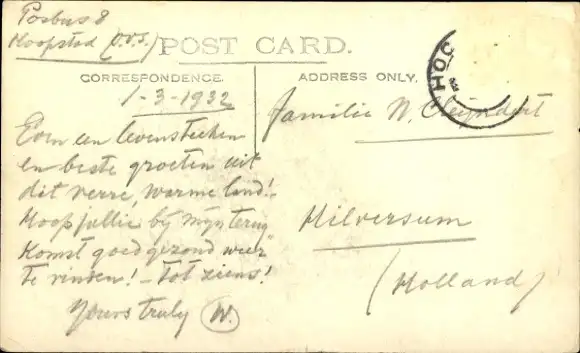 Posbus 8
Hoopstad (O.V.S.)
POST CARD.
CORRESPONDENCE.
ADDRESS ONLY.
HOO
1-3-1932
Even een levensteeken
en beste groeten uit
dit verre, warme land!-
Hoop jullie bij mijn terug
komst goed gezond weer
te vinden! - Tot ziens!
Yours truly W.
Familie W. Cleijndert
Hilversum
(Holland)